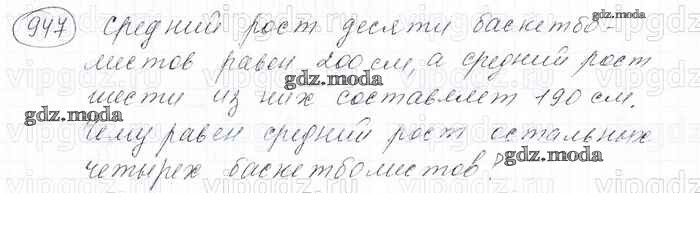 947 Средний рост десяти баскетбо-
листов равен 200 см, а средний рост
шести из них составляет 190 см.
Чему равен средний рост остальных
четырех баскетболистов?
gdz.moda
gdz.moda
gdz.moda
gdz.moda